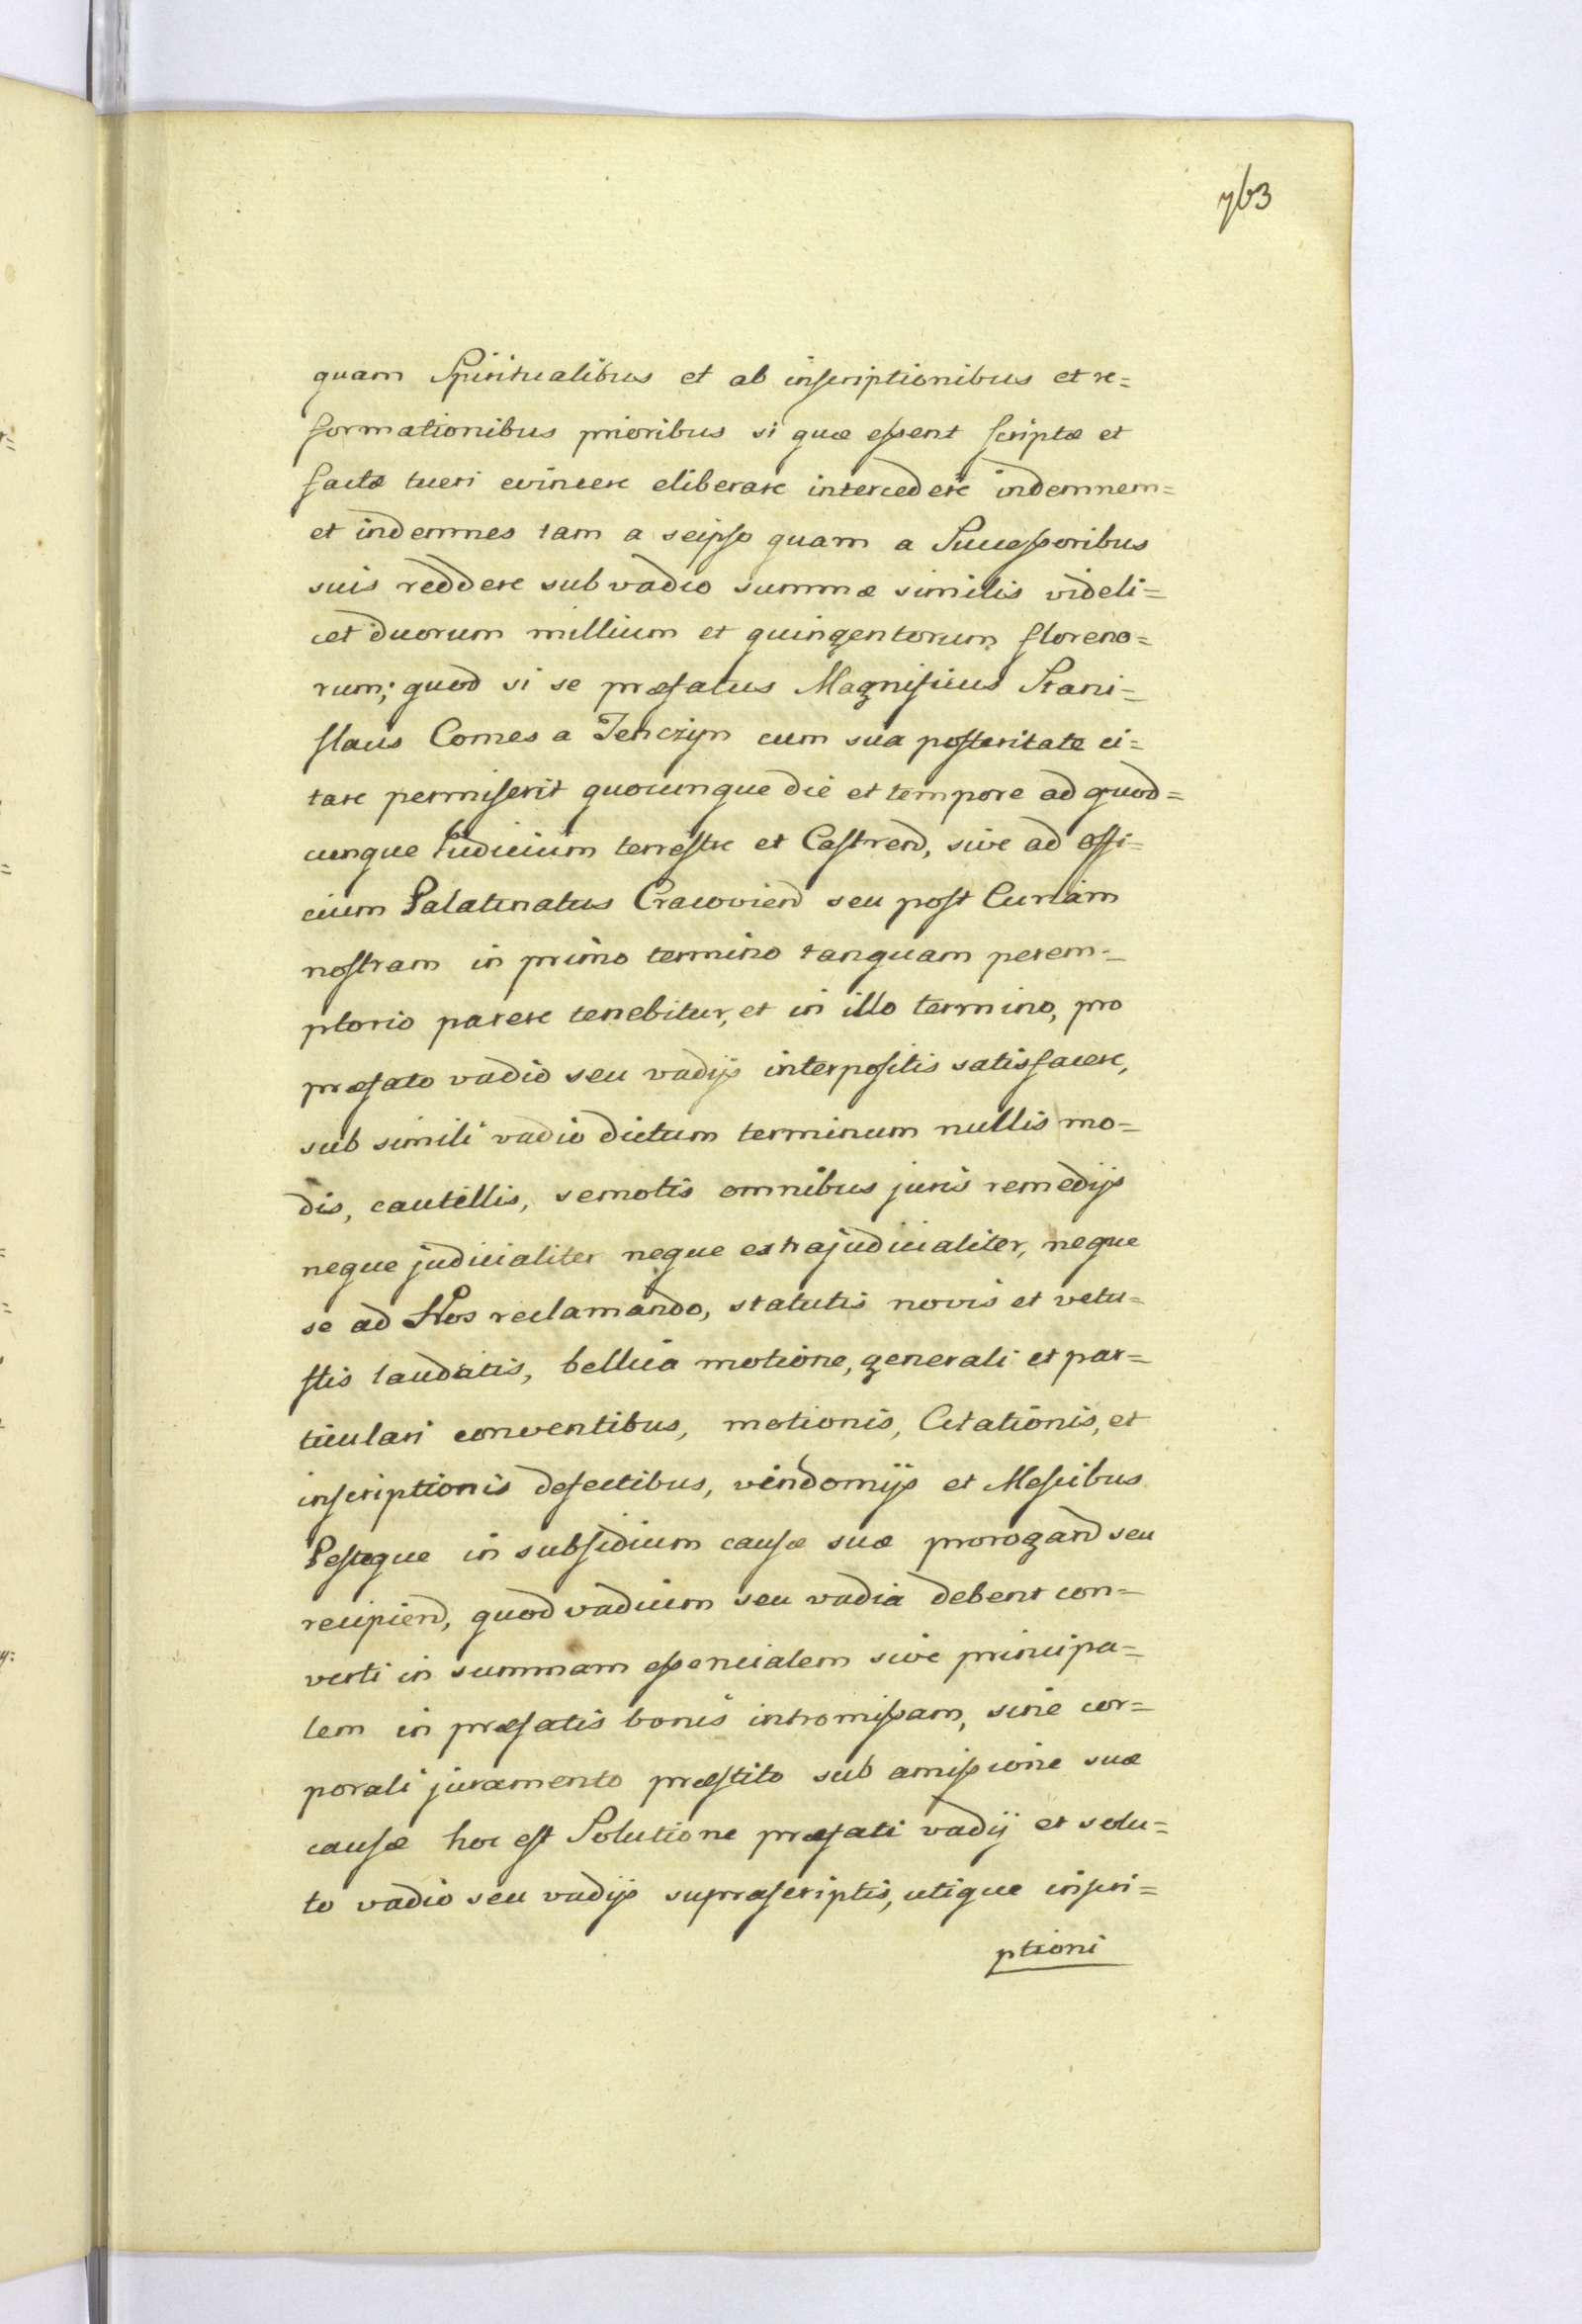 763
quam Spiritualibus et ab inscriptionibus et re=
formationibus prioribus si quæ essent scriptæ et
factæ tueri evincere eliberare intercedere indemnem=
et indemnes tam a seipso quam a Successoribus
suis reddere sub vadio summæ similis videli=
cet duorum millium et quingentorum floreno=
rum; quod si se præfatus Magnificus Stani=
slaus Comes a Tenczyn cum sua posteritate ci=
tare permiserit quocunque die et tempore ad quod=
cunque Iudicium terrestre et Castrend, sive ad offi=
cium Palatinatus Cracoviend seu post Curiam
nostram in primo termino tanquam perem=
ptorio parere tenebitur, et in illo termino, pro
præfato vadio seu vadijs interpositis satisfacere,
sub simili vadio dictum terminum nullis mo=
dis, cautellis, semotis omnibus juris remedijs
neque judicialiter neque extrajudicialiter, neque
se ad Nos reclamando, statutis novis et vetu=
stis laudatis, bellica motione, generali et par=
ticulari conventibus, motionis, Citationis, et
inscriptionis defectibus, vindomijs et Messibus
Pesteque in subsidium causæ suæ prorogand seu
recipiend, quod vadium seu vadia debent con=
verti in summam essencialem sive principa=
lem in præfatis bonis intromissam, sine cor=
porali juramento præstito sub amissione suæ
causæ hoc est Solutione præfati vadij et solu=
to vadio seu vadijs suprascriptis, utique inscri=
ptioni